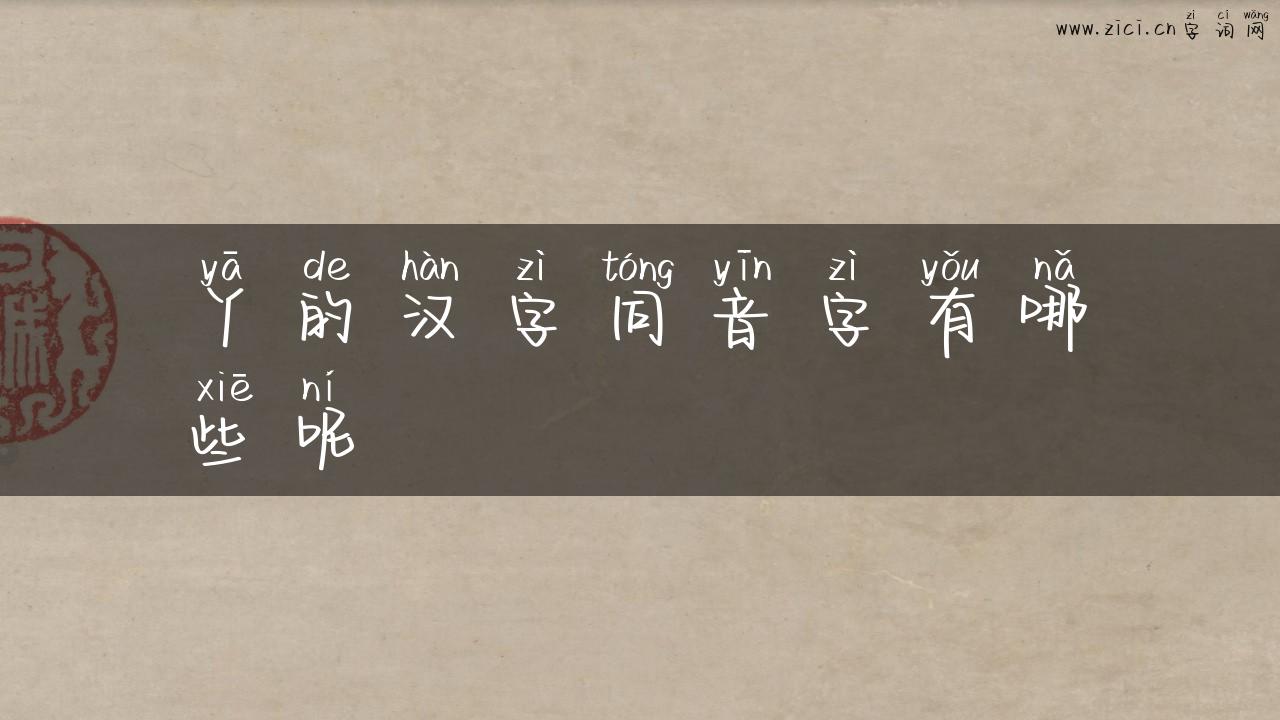 zì cí wǎng
www.zici.cn 字词网
yā de hàn zì tóng yīn zì yǒu nǎ
丫的汉字同音字有哪
xiē ní
些呢